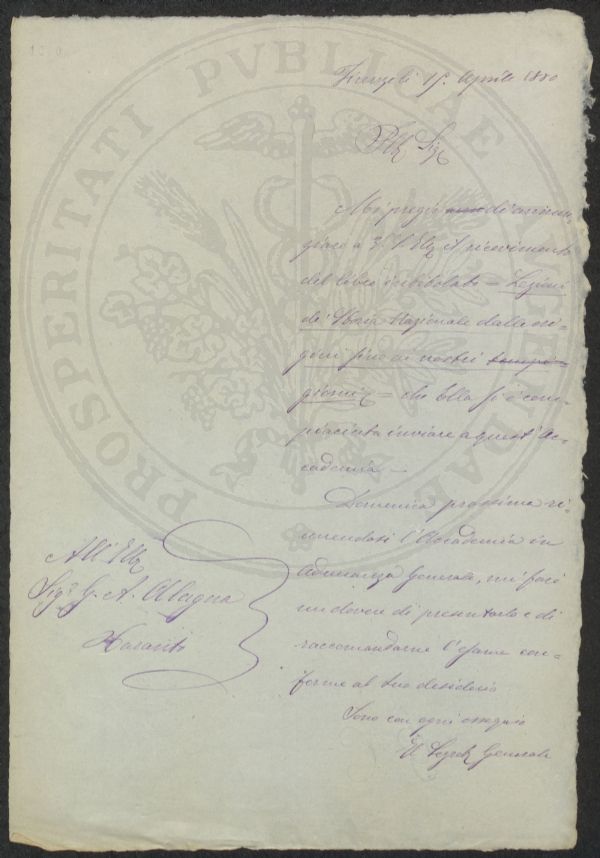 Firenze li 15 Aprile 1880
Ill. Sig.
Mi pregio di annun-
ziare a S. V. Ill. il ricevimento
del libro intitolato = Lezioni
di Storia Nazionale dalle ori-
gini fino ai nostri tempi
giorni = che Ella si è com-
piaciuta inviare a quest'Ac-
cademia. —
Domenica prossima ri-
unendosi l'Accademia in
adunanza Generale, mi farò
un dovere di presentarlo e di
raccomandarne l'esame con-
forme al suo desiderio
Sono con ogni ossequio
Il Segret. Generale
All'Ill.
Sig. G. A.
Taranto
PROSPERITATI PVBLICAE AVGENDAE